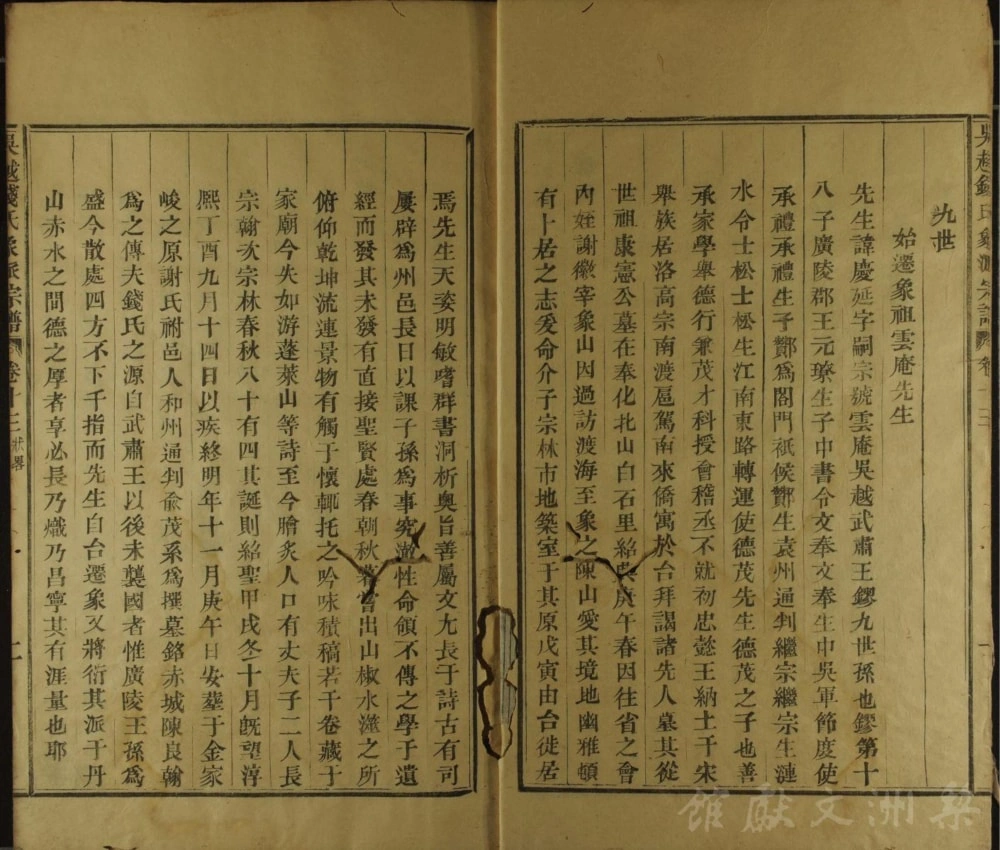 九世
始遷象祖雲庵先生
先生諱慶延字嗣宗號雲庵吳越武肅王鏐九世孫也鏐第十
八子廣陵郡王元璙生子中書令文奉文奉生中吳軍節度使
承禮承禮生子酇爲閣門祇候酇生袁州通判繼宗繼宗生漣
水令士松士松生江南東路轉運使德茂先生德茂之子也善
承家學舉德行兼茂才科授會稽丞不就初忠懿王納土于宋
舉族居洛高宗南渡扈駕南來僑寓於台拜謁諸先人墓其從
世祖康憲公墓在奉化北山白石里紹興庚午春因往省之會
內姪謝徽宰象山因過訪渡海至象之陳山愛其境地幽雅頓
有卜居之志爰命介子宗林市地築室于其原戊寅由台徙居
焉先生天姿明敏嗜群書洞析奧旨善屬文尢長于詩古有司
屢辟爲州邑長日以課子孫爲事究澈性命領不傳之學于遺
經而發其未發有直接聖賢處春朝秋暮嘗出山椒水澨之所
俯仰乾坤流連景物有觸于懷輒托之吟咏積稿若干卷藏于
家廟今失如游蓬萊山等詩至今膾炙人口有丈夫子二人長
宗翰次宗林春秋八十有四其誕則紹聖甲戌冬十月旣望淳
熙丁酉九月十四日以疾終明年十一月庚午日安葬于金家
峻之原謝氏祔邑人和州通判俞茂系爲撰墓銘赤城陳良翰
爲之傳夫錢氏之源自武肅王以後未襲國者惟廣陵王孫爲
盛今散處四方不下千指而先生自台遷象又將衍其派于丹
山赤水之間德之厚者享必長乃熾乃昌寧其有涯量也耶
吳越錢氏象派宗譜 卷十三 狀畧
梨洲文獻館